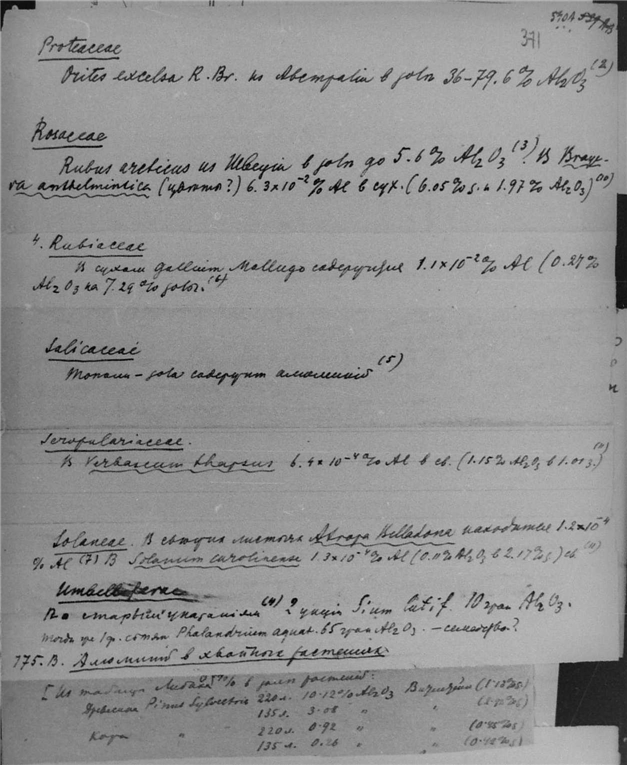 341
Proteaceae
Orites excelsa R. Br. из Австралии в золе 36-79.6% Al₂O₃ (2)
Rosaceae
Rubus arcticus из Швеции в золе до 5.6% Al₂O₃ (3). В Braye-
ra anthelmintica (цветы?) 6.3×10⁻²% Al в сух. (6.05% з. и 1.97% Al₂O₃) (10)
4. Rubiaceae
В сухом Gallium Mollugo содержится 1.1×10⁻²% Al (0.27%
Al₂O₃ на 7.29% золы.
Salicaceae
Тополи - зола содержит алюминий (5)
Scropulariaceae.
В Verbascum thapsus 6.4×10⁻⁴% Al в св. (1.15% Al₂O₃ в 1.01 з.) (11)
Solaneae. В свежих листьях Atropa Belladona находится 1.2×10⁻⁴
% Al (7) В Solanum carolinense 1.3×10⁻⁴% Al (0.11% Al₂O₃ в 2.17% з) св (11)
Umbelliferae
По старым указаниям (4) ? унции Sium latif. 10 гран Al₂O₃.
тогда где 1 ф. семян Phalandrium aquat. 65 гран Al₂O₃. - семейства?
175. В. Алюминий в хвойных растениях
Из таблицы % в золе растений:
Древесина Pinus Sylvestris 220 л. 10.12% Al₂O₃
135 л. 3.08 " "
Кора " 220 л. 0.92 " " (0.45% з)
135 л. 0.26 " "